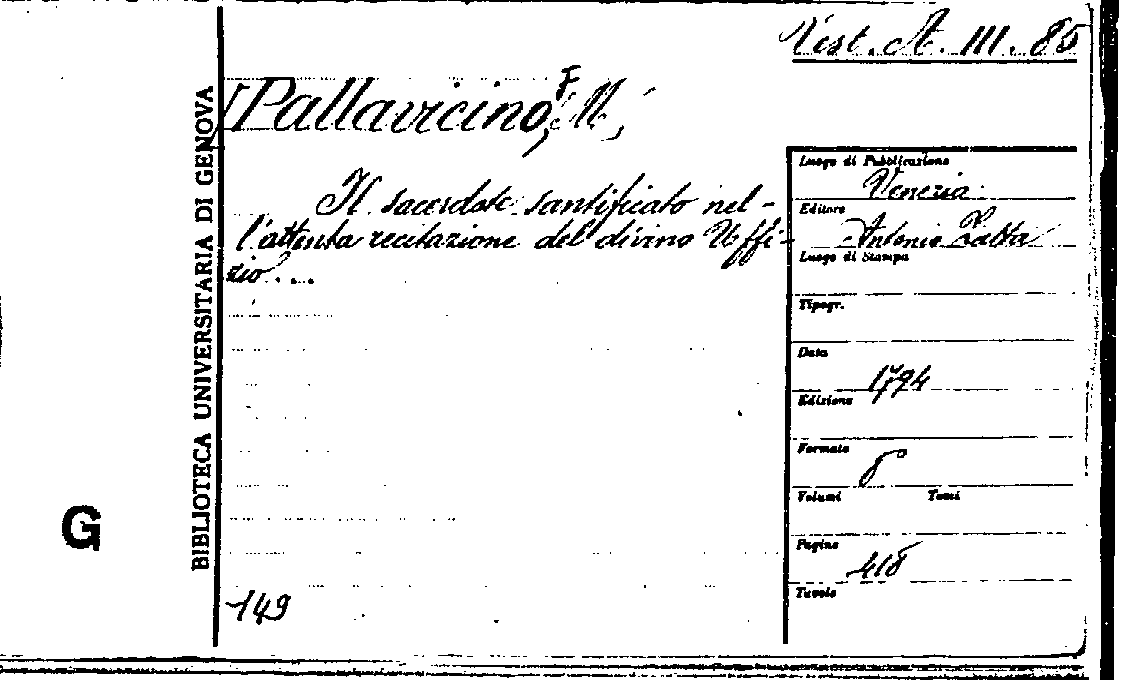 Vist. A. III. 85
Pallavicino, F. M.,
Il sacerdote santificato nel-
l'attenta recitazione del divino Uffi-
zio...
149
BIBLIOTECA UNIVERSITARIA DI GENOVA
G
Luogo di Pubblicazione
Venezia
Editore
Antonio Zatta
Luogo di Stampa
Tipogr.
Data
1794
Edizione
Formato
8°
Volumi Tomi
Pagine
418
Tavole